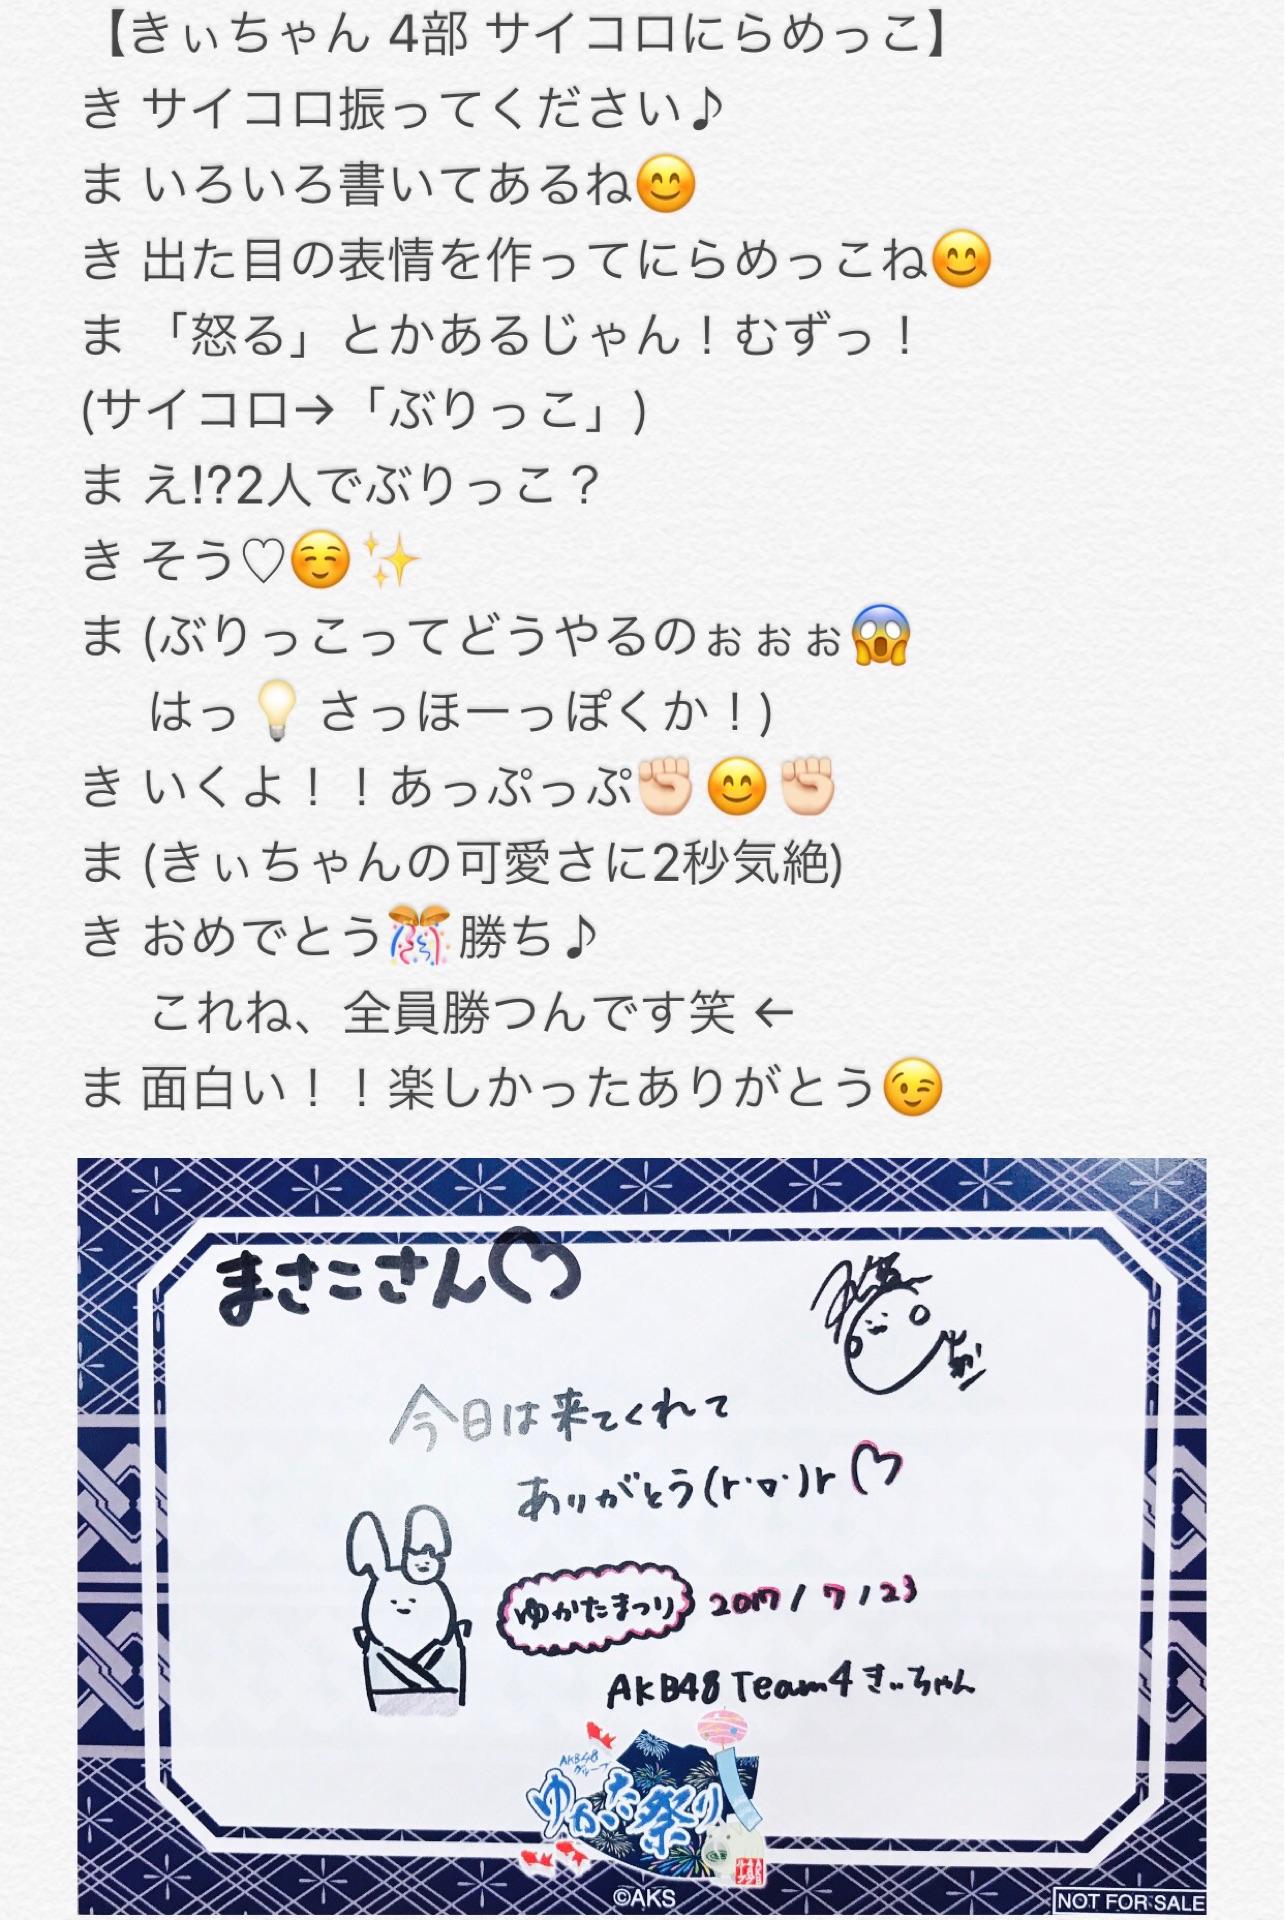 【きぃちゃん 4部 サイコロにらめっこ】
き サイコロ振ってください♪
ま いろいろ書いてあるね😊
き 出た目の表情を作ってにらめっこね😊
ま 「怒る」とかあるじゃん！むずっ！
(サイコロ→「ぶりっこ」)
ま え!?2人でぶりっこ？
き そう♡☺️✨
ま (ぶりっこってどうやるのぉぉぉ😱
はっ💡 さっほーっぽくか！)
き いくよ！！あっぷっぷ✊🏻😊✊🏻
ま (きぃちゃんの可愛さに2秒気絶)
き おめでとう🎊勝ち♪
これね、全員勝つんです笑 ←
ま 面白い！！楽しかったありがとう😉
まさこさん♡
今日は来てくれて
ありがとう(r・▽・)r♡
ゆかたまつり 2017/7/23
AKB48 Team4 きぃちゃん
AKB48
グループ
ゆかた祭り
©AKS
NOT FOR SALE